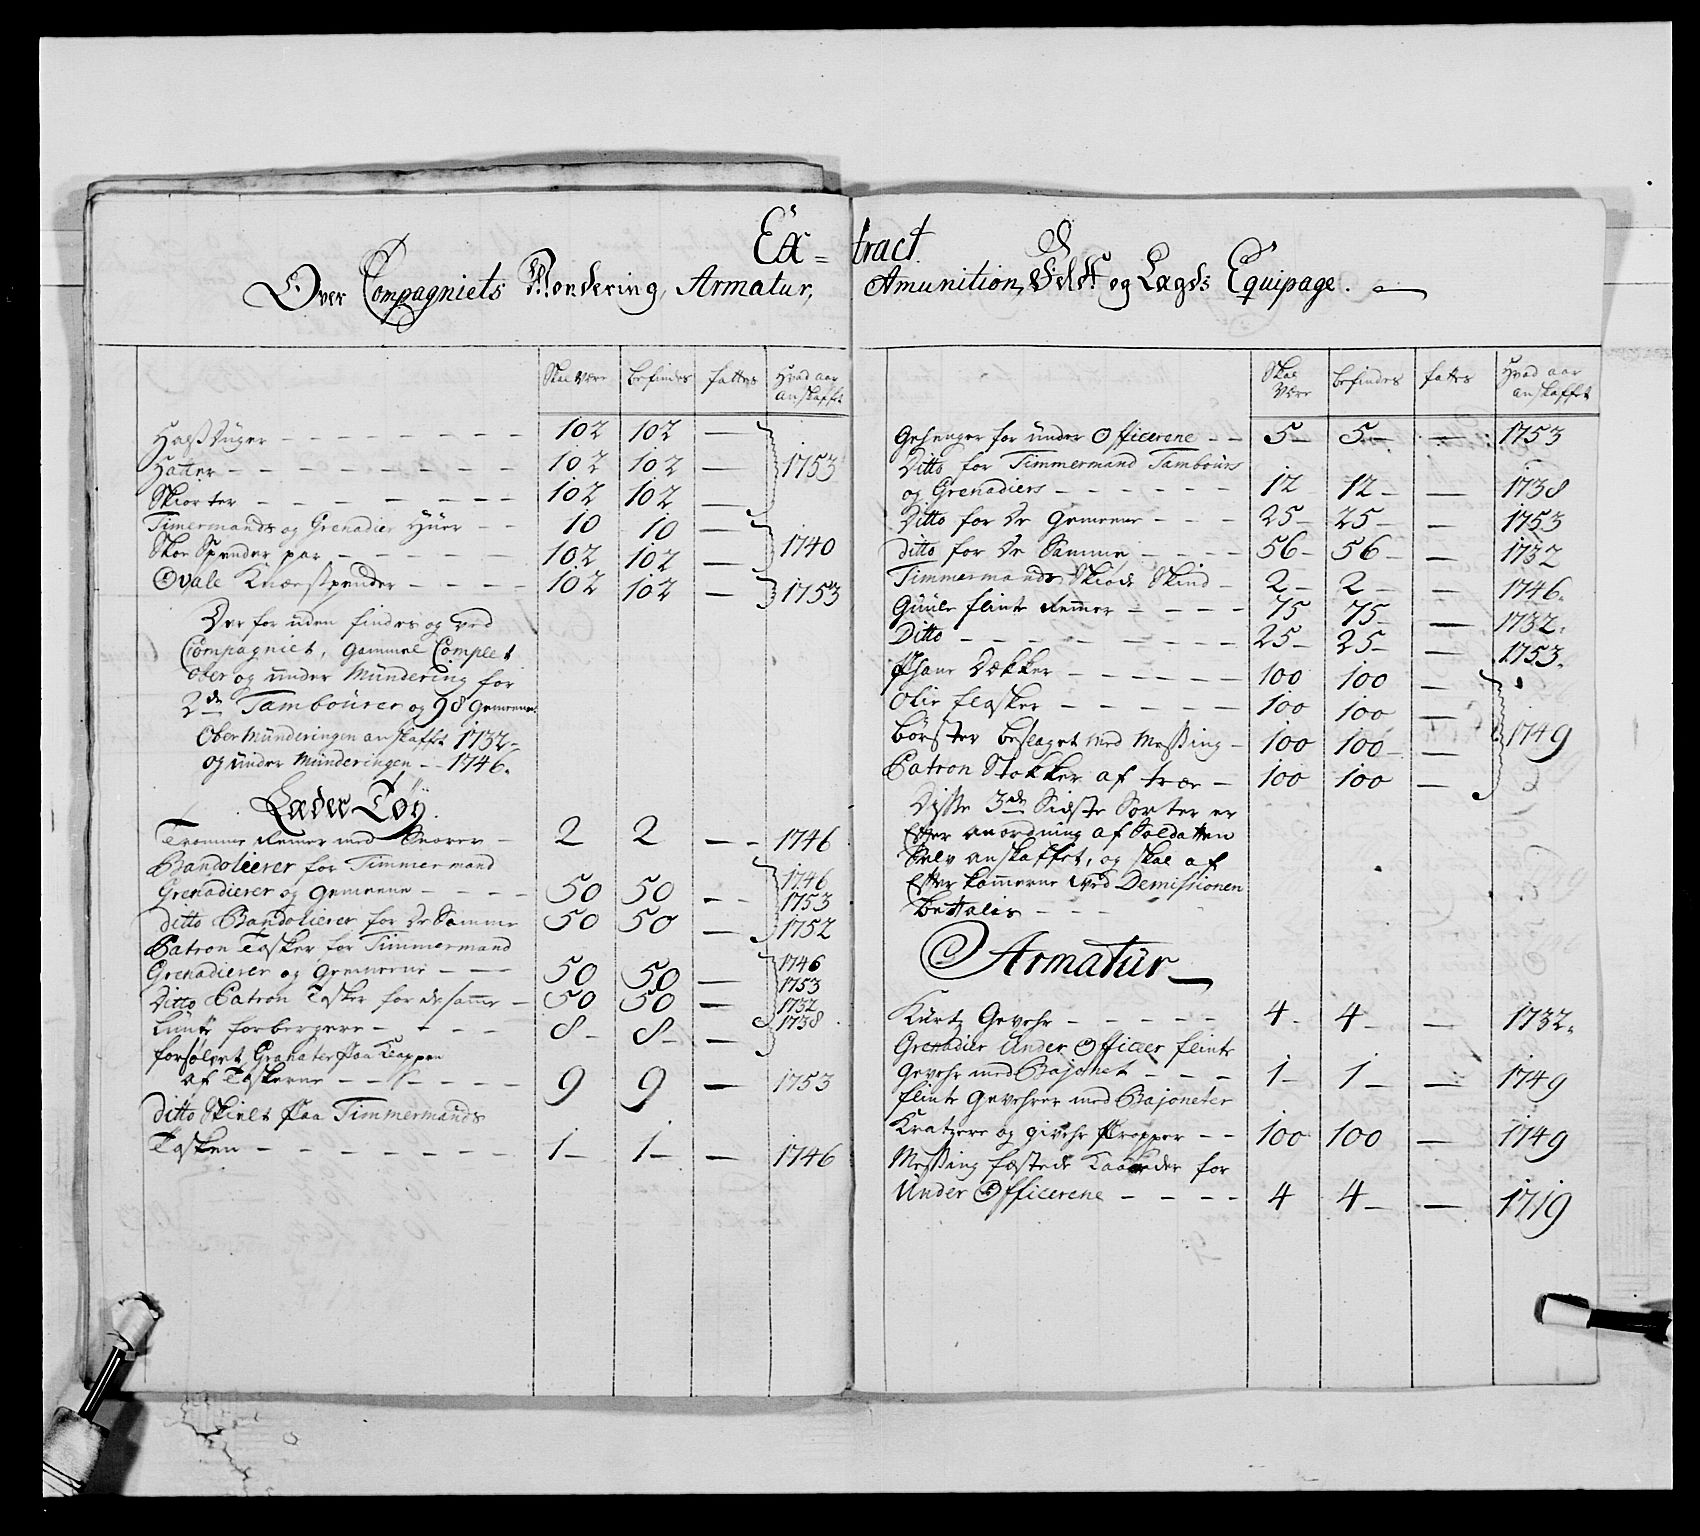 Ex= tract.
Over Compagniets Mondering, Armatur, Amunition, Feldt og Lægds Equipage.
Skal være befindes fattes Hvad aar anskaffet
Halsduger 102 102 — 1753
Hatter 102 102 —
Skiorter 102 102 —
Timermands og Grenadier Huer 10 10 — 1740
Skoe Spender par 102 102 —
Ovale Knæespender 102 102 — 1753
Der for uden findes og ved
Compagniet, gammel Complet
Ober og under Mündering for
2de Tambourer og 98 Gemeene
Ober Münderingen anskaffet 1732
og under Münderingen 1746.
Læder Töy.
Tromme Remer med Snorer 2 2 — 1746
Bandolierer for Timmermand 1746
Grenadierer og Gemeene 50 50 — 1753
ditto Bandolierer for De Samme 50 50 — 1752
Patron Tasker for Timmermand 1746
Grenadierer og Gemeene 50 50 — 1753
Ditto Patron Tasker for de samme 50 50 — 1732
Lunte forbergere 8 8 — 1738
forsølvet Granater paa Klappen
af Taskerne 9 9 — 1753
ditto Skielt paa Timmermands
Tasken 1 1 — 1746
Skal være befindes fattes Hvad aar anskaffet
Gehenger for under Officerene 5 5 — 1753
Ditto for Timmermand Tambours
og Grenadiers 12 12 — 1738
Ditto for De Gemeene 25 25 — 1753
ditto for De Samme 56 56 — 1732
Timmermands Skiøds Skind 2 2 — 1746.
Guule flinte Remmer 75 75 — 1732.
Ditto 25 25 — 1753.
Phane Dækker 100 100 —
Olie flasker 100 100 — 1749
börster beslaget med Messing 100 100 —
Patron Stokker af træe 100 100 —
Disse 3de Sidste Sorter er
Efter anordning af Soldatten
Selv anskaffet, og skal af
Efter kommerne ved Demissionen
bettalis
Armatür
Kürtz Gevehr 4 4 — 1732.
Grenadier Under Officer flinte
Gevehr med Bajonet 1 1 — 1749
flinte Gevehrer med Bajoneter
Kratzere og givehr Propper 100 100 — 1749
Messing fæstede Kaarder for
Under Officerene 4 4 — 1719